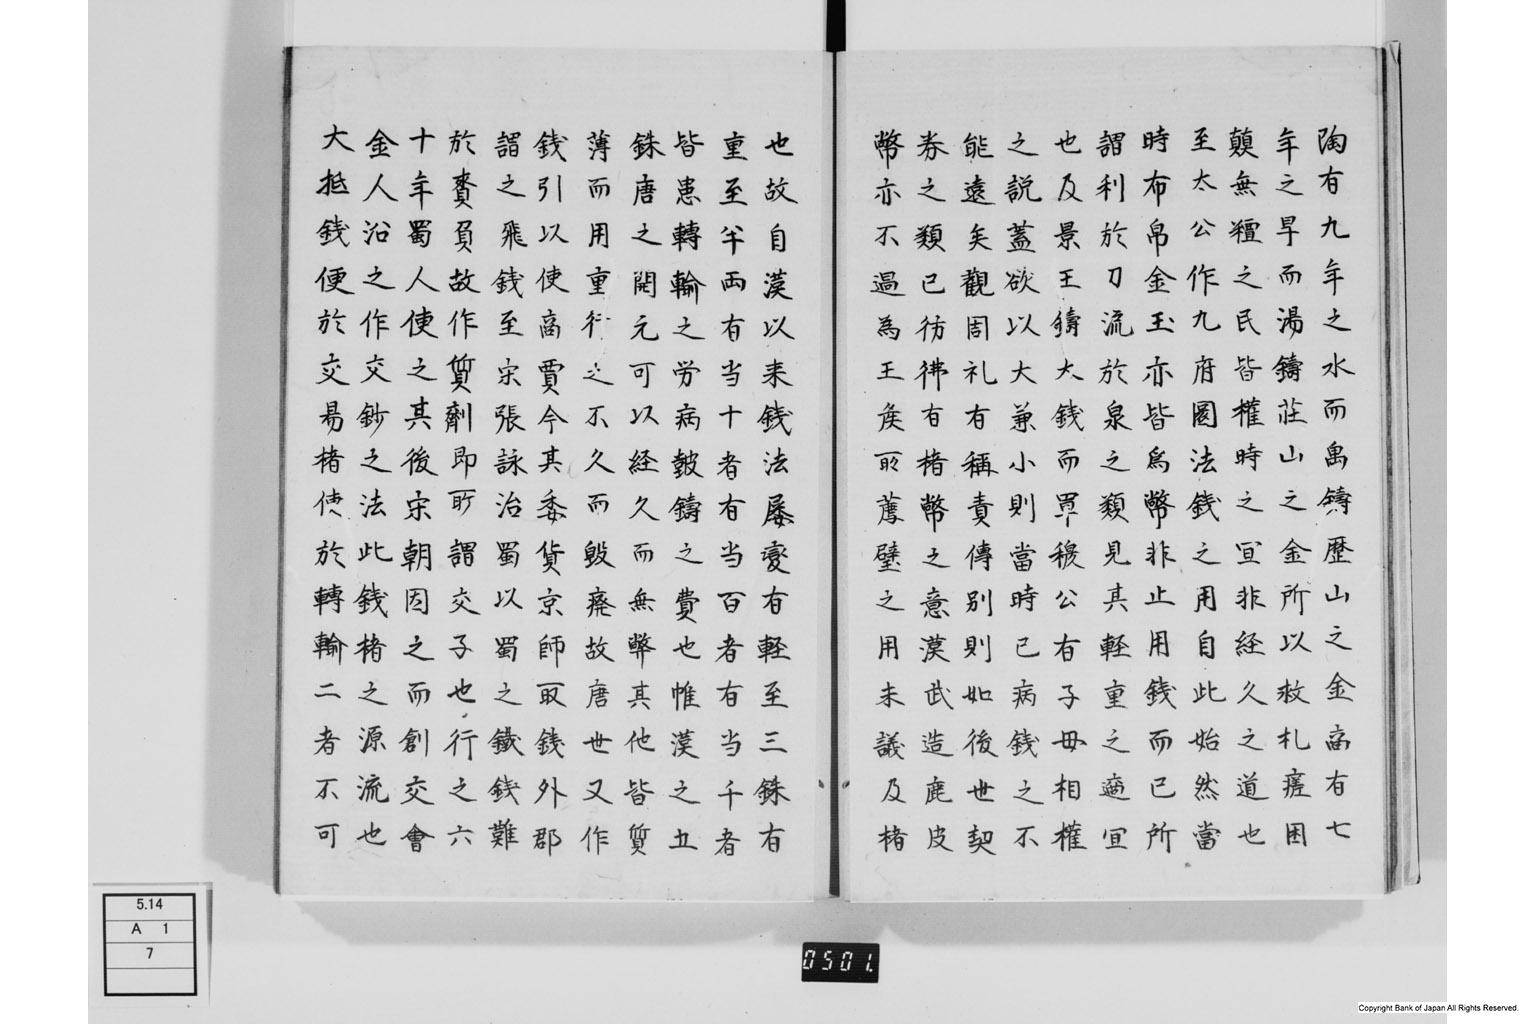 陶有九年之水而禹鑄歷山之金商有七
年之旱而湯鑄莊山之金所以救札瘥困
贖無糧之民皆權時之宜非経久之道也
至太公作九府圜法錢之用自此始然當
時布帛金玉亦皆為幣非止用錢而已所
謂利於刀流於泉之類見其軽重之適宜
也及景王鑄大錢而單穆公有子母相權
之說蓋欲以大兼小則當時已病錢之不
能遠矣觀周礼有稱責傳別則如後世契
券之類已彷彿有楮幣之意漢武造鹿皮
幣亦不過為王侯取薦璧之用未議及楮
也故自漢以来錢法屡変有軽至三銖有
重至半両有当十者有当百者有当千者
皆患轉輸之労病皷鑄之費也惟漢之五
銖唐之開元可以経久而無幣其他皆質
薄而用重行之不久而毀廃故唐世又作
錢引以使商賈今其委貨京師取錢外郡
謂之飛錢至宋張詠治蜀以蜀之鐵錢難
於賚負故作質劑即所謂交子也行之六
十年蜀人使之其後宋朝因之而創交會
金人沿之作交鈔之法此錢楮之源流也
大抵錢便於交易楮使於轉輸二者不可
5.14
A 1
7
0501.
Copyright Bank of Japan All Rights Reserved.